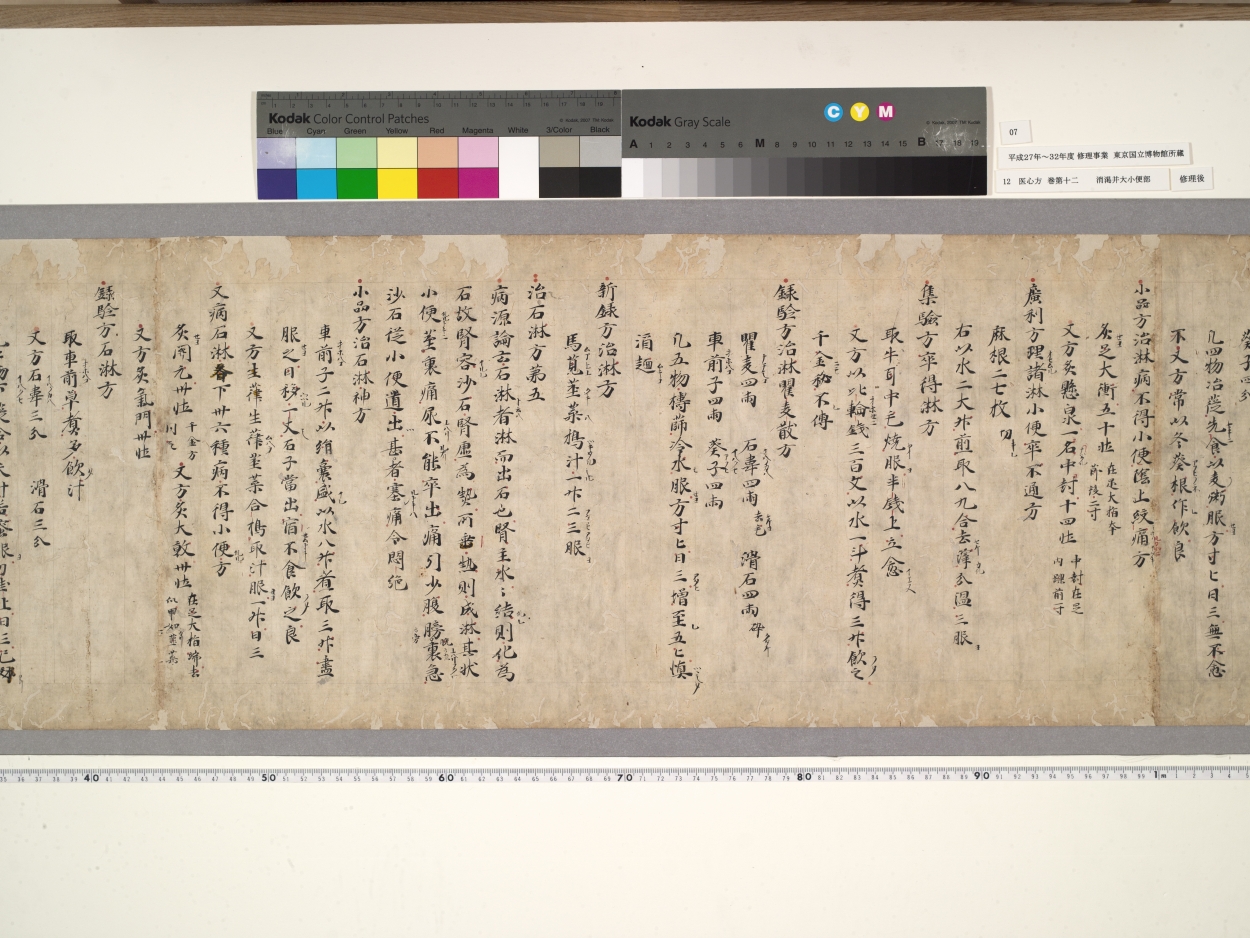 Kodak Color Control Patches
Blue Cyan Green Yellow Red Magenta White 3/Color Black
Kodak Gray Scale
C Y M
A 1 2 3 4 5 6 M 8 9 10 11 12 13 14 15 B 17 18 19
07
平成27年～32年度 修理事業 東京国立博物館所蔵
12 医心方 巻第十二 消渇并大小便部
修理後
凡四物冶篩先食以麦粥服方寸匕日三無不愈
又方常以冬葵根作飲良
小品方治淋病不得小便陰上紋痛方
灸足大衝五十壮
在足大指本
節後二寸
又方灸懸泉一名中封十四壮
中封在足
内踝前一寸
廣利方理諸淋小便卒不通方
麻根二七枚切
右以水二大升煎取八九合去滓分温三服
集驗方卒得淋方
取牛耳中毛燒服半錢上立愈
又方以比輪錢三百文以水一斗煑得三升飲之
千金祕不傳
録驗方治淋瞿麦散方
瞿麦四兩 石韋四兩去毛 滑石四兩碎
車前子四兩 葵子四兩
凡五物擣篩冷水服方寸匕日三増至五匕慎
酒麺
新録方治淋方
馬莧莖葉搗汁一升二三服
治石淋方第五
病源論云石淋者淋而出石也腎主水々結則化為
石故腎客沙石腎虚為熱所乘熱則成淋其状
小便莖裏痛尿不能卒出痛引少腹膀裏急
沙石從小便道出甚者塞痛令悶絶
小品方治石淋神方
車前子二升以絹囊盛以水八升煮取三升盡
服之日移二丈石子當出宿不食飲之良
又方生葎生葎莖葉合搗取汁服一升日三
又病石淋 下卅六種病不得小便方
灸關元卅壮千金方 又方灸大敦卅壮
又方灸氣門卅壮
録驗方石淋方
取車前草煑多飲汁
又方石韋三分 滑石三分
40 50 60 70 80 90 1m